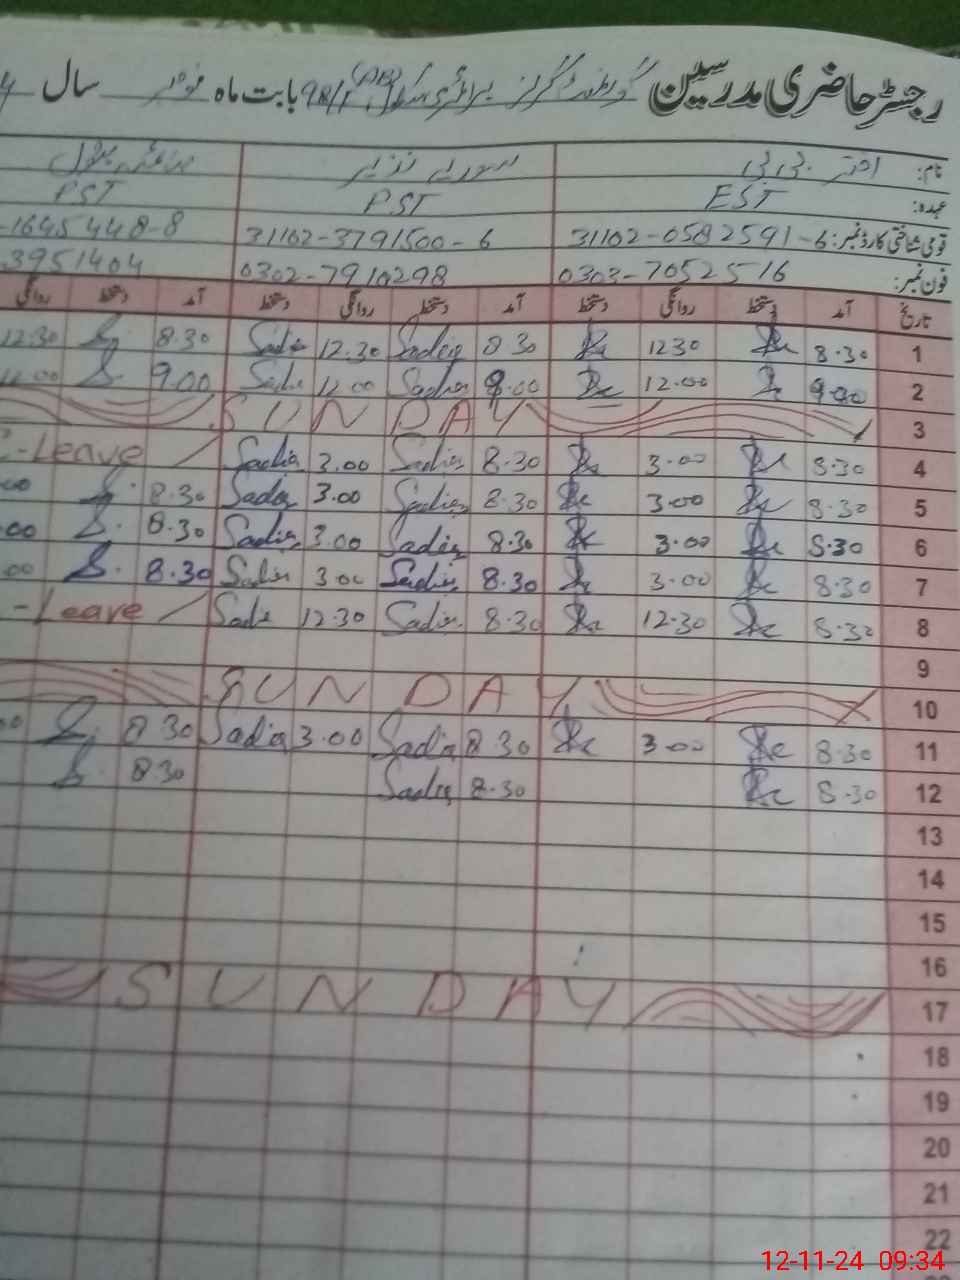 رجسٹر حاضری مدرسین گورنمنٹ گرلز پرائمری سکول 98/1 (DB) بابت ماہ نومبر سال 4
نام: اختر بی بی
عہدہ: EST PST PST
قومی شناختی کارڈ نمبر: 31102-0582591-6 31102-3791500-6 -1645448-8
فون نمبر: 0303-7052516 0302-7910298 3951404
تاریخ آمد دستخط روانگی دستخط آمد دستخط روانگی دستخط آمد دستخط روانگی
1 8.30 12.30 8.30 Sadia 12.30 Sadia 8.30 12.30
2 9.00 12.00 9.00 Sadia 12.00 Sadia 9.00 12.00
3 SUNDAY
4 8.30 3.00 8.30 Sadia 3.00 Sadia C-Leave
5 8.30 3.00 8.30 Sadia 3.00 Sadia 8.30 00
6 8.30 3.00 8.30 Sadia 3.00 Sadia 8.30 00
7 8.30 3.00 8.30 Sadia 3.00 Sadia 8.30 00
8 8.30 12.30 8.30 Sadia 12.30 Sadia -Leave
9
10 SUNDAY
11 8.30 3.00 8.30 Sadia 3.00 Sadia 8.30 00
12 8.30 8.30 Sadia 8.30
13
14
15
16
17 SUNDAY
18
19
20
21
22
12-11-24 09:34